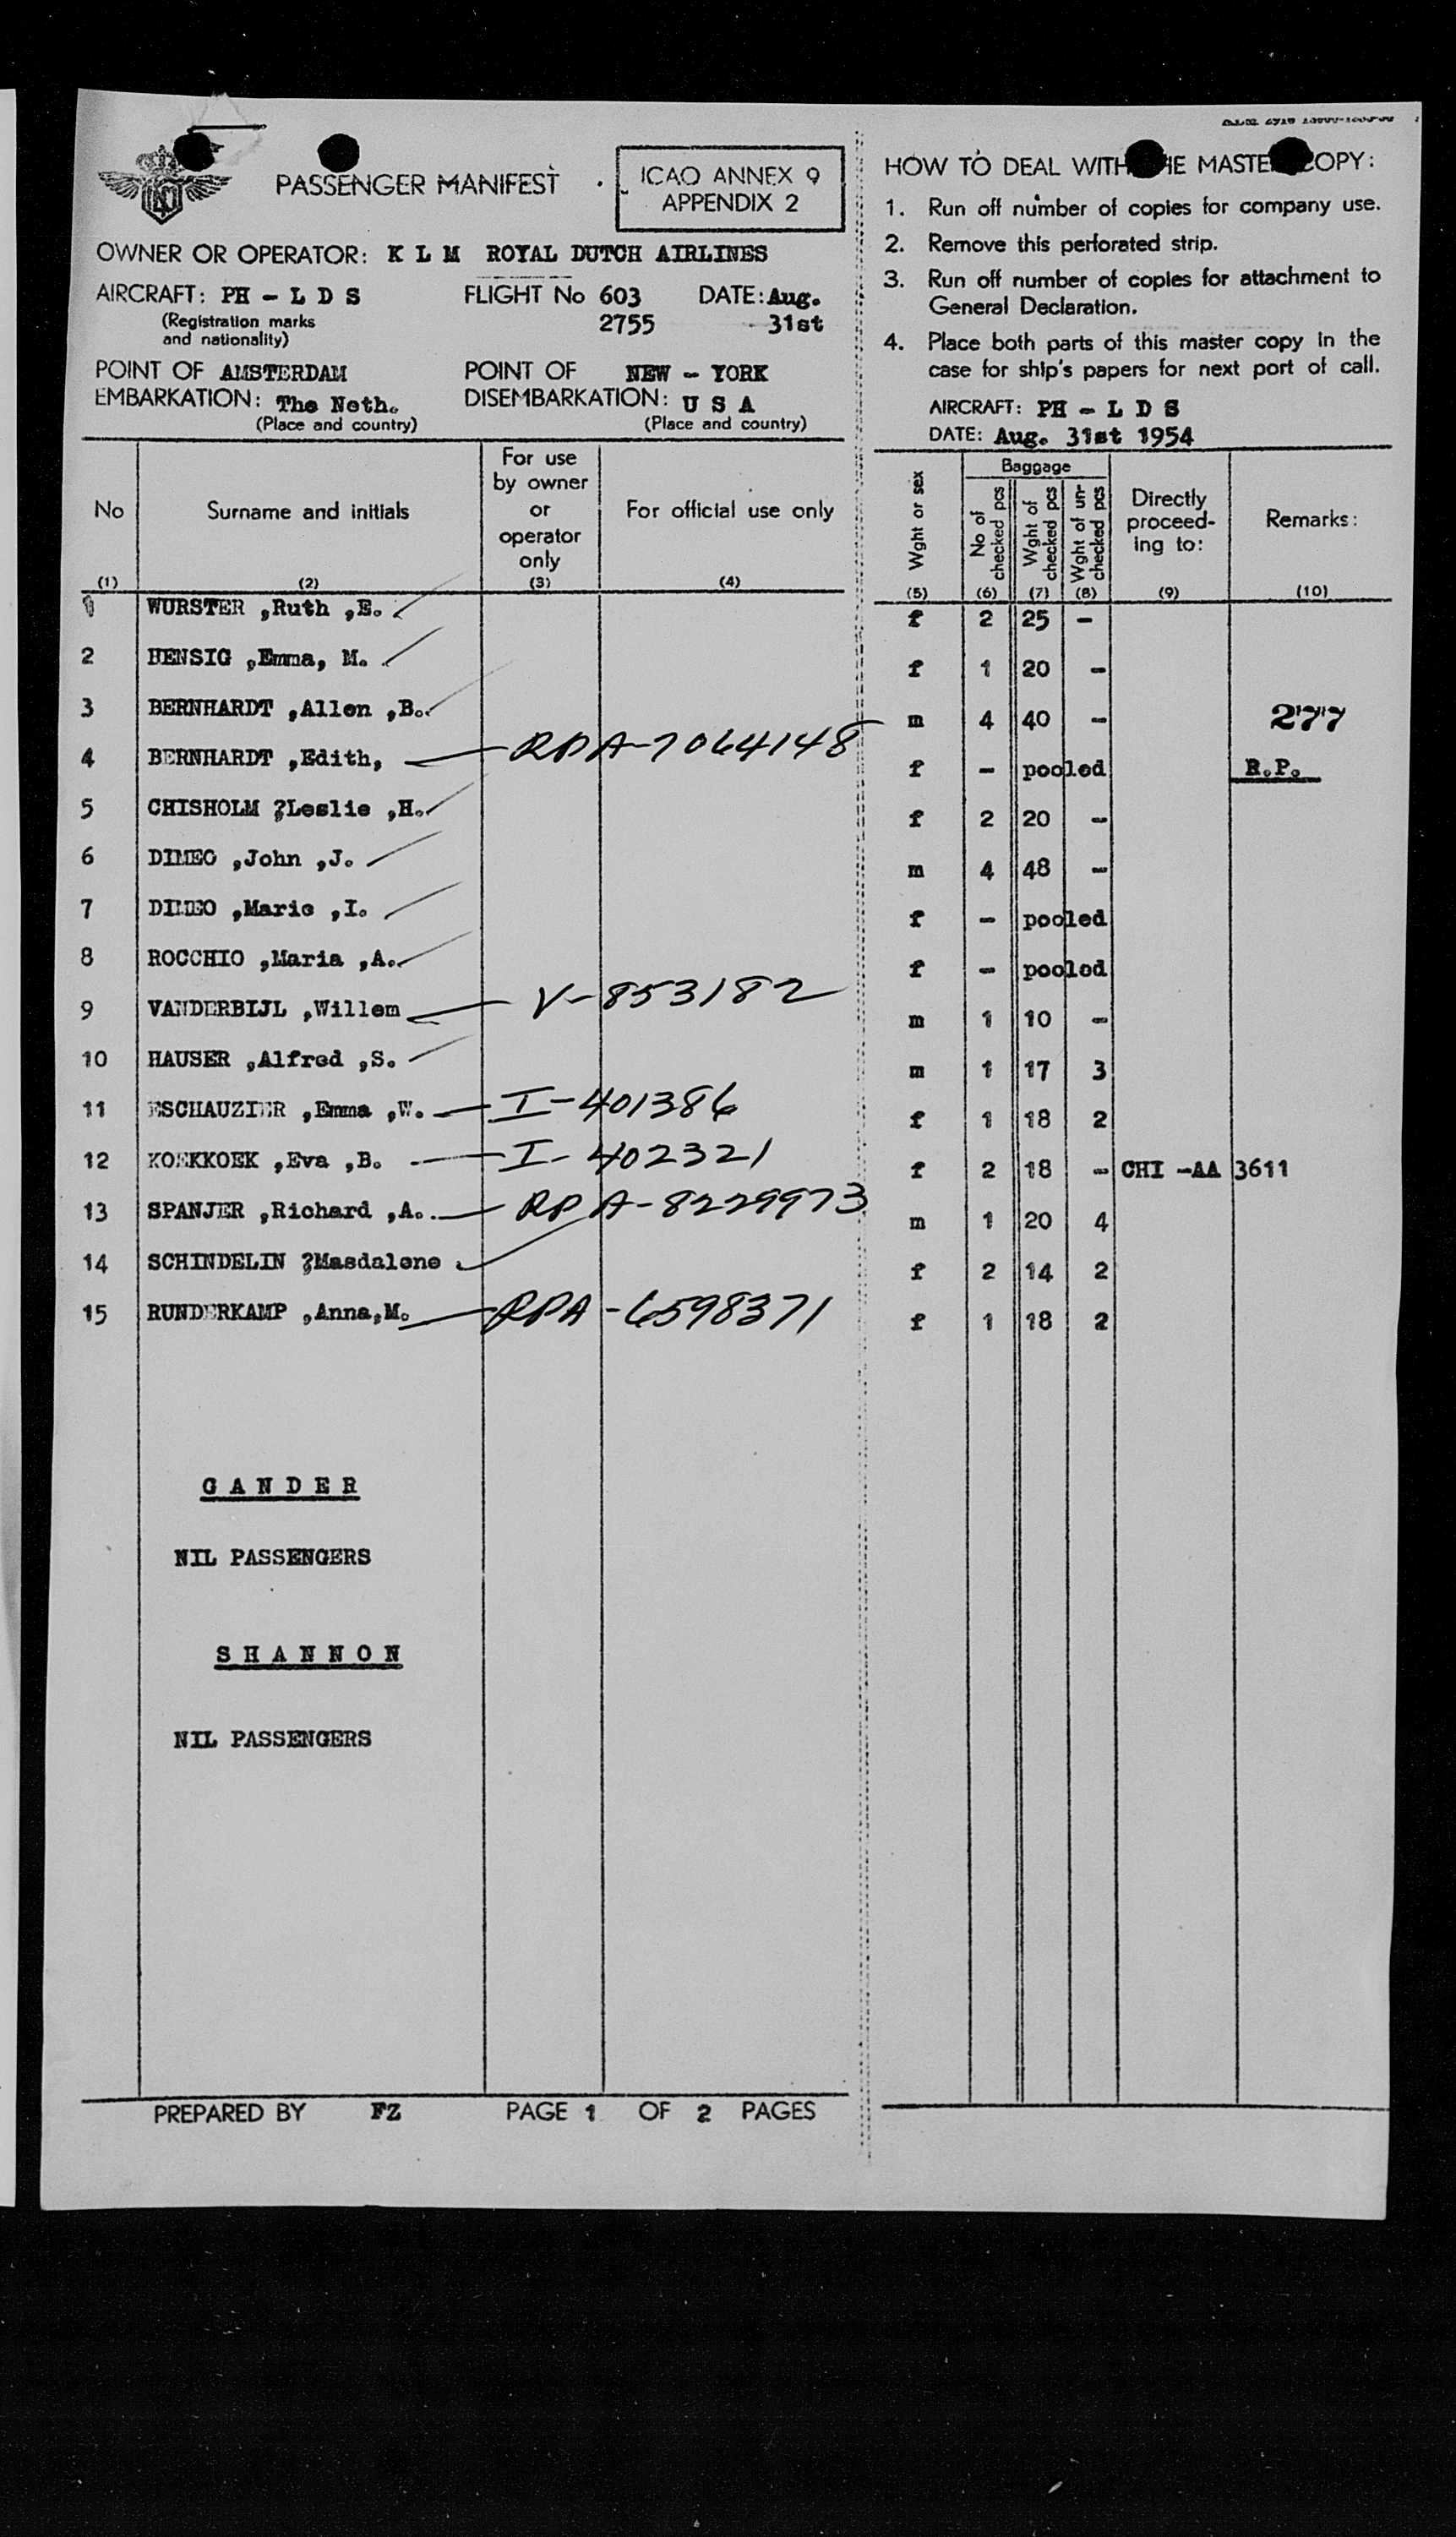 PASSENGER MANIFEST
ICAO ANNEX 9
APPENDIX 2
OWNER OR OPERATOR: K L M ROYAL DUTCH AIRLINES
AIRCRAFT: PH - L D S FLIGHT No 603 DATE: Aug.
(Registration marks and nationality) 2755 31st
POINT OF EMBARKATION: AMSTERDAM The Neth.
(Place and country)
POINT OF DISEMBARKATION: NEW - YORK U S A
(Place and country)
HOW TO DEAL WITH HE MASTE OPY:
1. Run off number of copies for company use.
2. Remove this perforated strip.
3. Run off number of copies for attachment to
General Declaration.
4. Place both parts of this master copy in the
case for ship's papers for next port of call.
AIRCRAFT: PH - L D S
DATE: Aug. 31st 1954
No Surname and initials For use by owner or operator only For official use only Wght or sex Baggage No of checked pcs Wght of checked pcs Wght of un-checked pcs Directly proceed-ing to: Remarks:
(1) (2) (3) (4) (5) (6) (7) (8) (9) (10)
1 WURSTER ,Ruth ,E. f 2 25 -
2 HENSIG ,Emma, M. f 1 20 -
3 BERNHARDT ,Allen ,B. m 4 40 - 277
4 BERNHARDT ,Edith, RPA-7064148 f - pooled R.P.
5 CHISHOLM ?Leslie ,H. f 2 20 -
6 DIMEO ,John ,J. m 4 48 -
7 DIMEO ,Marie ,I. f - pooled
8 ROCCHIO ,Maria ,A. f - pooled
9 VANDERBIJL ,Willem V-853182 m 1 10 -
10 HAUSER ,Alfred ,S. m 1 17 3
11 ESCHAUZIER ,Emma ,W. I-401386 f 1 18 2
12 KOEKKOEK ,Eva ,B. I-402321 f 2 18 - CHI -AA 3611
13 SPANJER ,Richard ,A. RPA-8229973 m 1 20 4
14 SCHINDELIN ?Masdalene f 2 14 2
15 RUNDERKAMP ,Anna,M. RPA-6598371 f 1 18 2
G A N D E R
NIL PASSENGERS
S H A N N O N
NIL PASSENGERS
PREPARED BY FZ PAGE 1 OF 2 PAGES